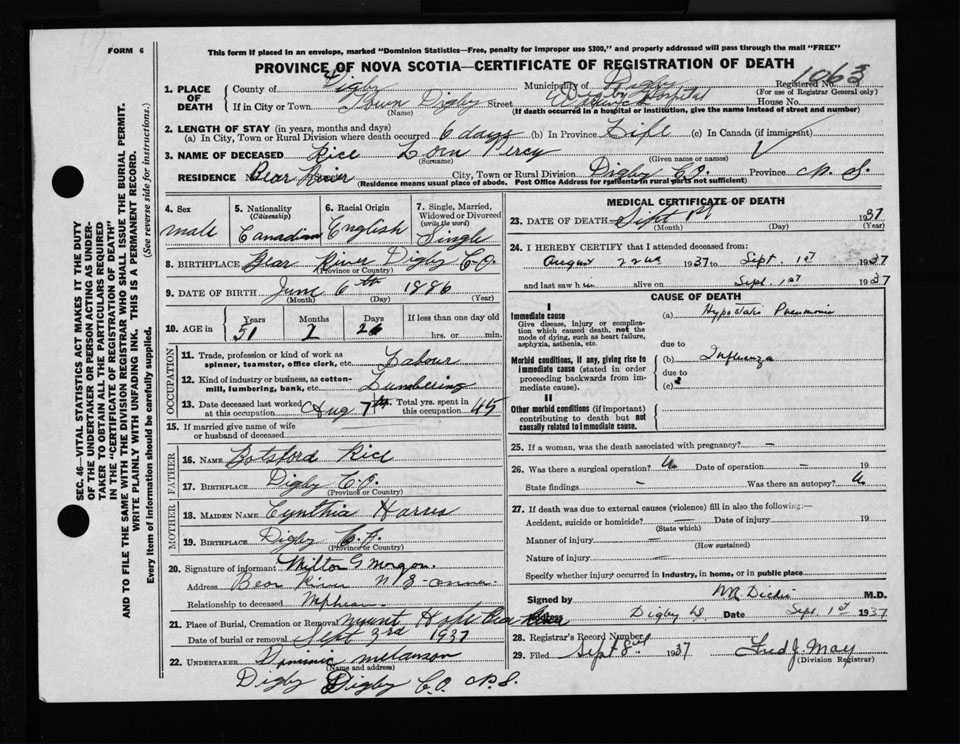 FORM 6
This form if placed in an envelope, marked "Dominion Statistics—Free, penalty for improper use $300," and properly addressed will pass through the mail "FREE"
PROVINCE OF NOVA SCOTIA—CERTIFICATE OF REGISTRATION OF DEATH
1. PLACE OF DEATH County of Digby Municipality of Digby Registered No. 1063
(For use of Registrar General only)
If in City or Town Town Digby Street Digby Hospital House No.
(Name) (If death occurred in a hospital or institution, give the name instead of street and number)
2. LENGTH OF STAY (in years, months and days)
(a) In City, Town or Rural Division where death occurred 6 days (b) In Province Life (c) In Canada (if immigrant)
3. NAME OF DECEASED Rice Lorn Percy
(Surname) (Given name or names)
RESIDENCE Bear River City, Town or Rural Division Digby CO. Province N. S.
(Residence means usual place of abode. Post Office Address for residents in rural parts not sufficient)
4. Sex male
5. Nationality (Citizenship) Canadian
6. Racial Origin English
7. Single, Married, Widowed or Divorced (write the word) Single
8. BIRTHPLACE Bear River Digby C.O.
(Province or Country)
9. DATE OF BIRTH June 6th 1886
(Month) (Day) (Year)
10. AGE in Years 51 Months 2 Days 26 If less than one day old hrs. or min.
OCCUPATION
11. Trade, profession or kind of work as spinner, teamster, office clerk, etc. Labour
12. Kind of industry or business, as cotton-mill, lumbering, bank, etc. Lumbering
13. Date deceased last worked at this occupation Aug 7th Total yrs. spent in this occupation 45
15. If married give name of wife or husband of deceased
FATHER
16. NAME Botsford Rice
17. BIRTHPLACE Digby C.O.
(Province or Country)
MOTHER
18. MAIDEN NAME Cynthia Harris
19. BIRTHPLACE Digby
(Province or Country)
20. Signature of informant Milton G Morgan.
Address Bear River N S
Relationship to deceased
21. Place of Burial, Cremation or Removal Mount Hope Bear River
Date of burial or removal Sept 3rd 1937
22. UNDERTAKER Dominic Melanson
(Name and address)
Digby Digby C.O. N. S.
MEDICAL CERTIFICATE OF DEATH
23. DATE OF DEATH Sept 1st 1937
(Month) (Day) (Year)
24. I HEREBY CERTIFY that I attended deceased from:
August 22nd 1937 to Sept. 1st 1937
and last saw him alive on Sept. 1st 1937
CAUSE OF DEATH
I
Immediate cause
Give disease, injury or complication which caused death, not the mode of dying, such as heart failure, asphyxia, asthenia, etc.
(a) Hypostatic Pneumonia
due to
Morbid conditions, if any, giving rise to immediate cause (stated in order proceeding backwards from immediate cause).
(b) Influenza
due to
(c)
II
Other morbid conditions (if important) contributing to death but not causally related to immediate cause.
25. If a woman, was the death associated with pregnancy? —
26. Was there a surgical operation? Date of operation — 19
State findings - Was there an autopsy?
27. If death was due to external causes (violence) fill in also the following:—
Accident, suicide or homicide? — Date of injury 19
(State which)
Manner of injury —
(How sustained)
Nature of injury —
Specify whether injury occurred in Industry, in home, or in public place
Signed by M.D.
Address Digby NS Date Sept. 1st 1937
28. Registrar's Record Number
29. Filed Sept 8th 1937 Fred J. May
(Division Registrar)
SEC. 46—VITAL STATISTICS ACT MAKES IT THE DUTY
OF THE UNDERTAKER OR PERSON ACTING AS UNDER-
TAKER TO OBTAIN ALL THE PARTICULARS REQUIRED
IN THE "CERTIFICATE OF REGISTRATION OF DEATH"
AND TO FILE THE SAME WITH THE DIVISION REGISTRAR WHO SHALL ISSUE THE BURIAL PERMIT.
WRITE PLAINLY WITH UNFADING INK. THIS IS A PERMANENT RECORD.
Every item of information should be carefully supplied. (See reverse side for instructions.)